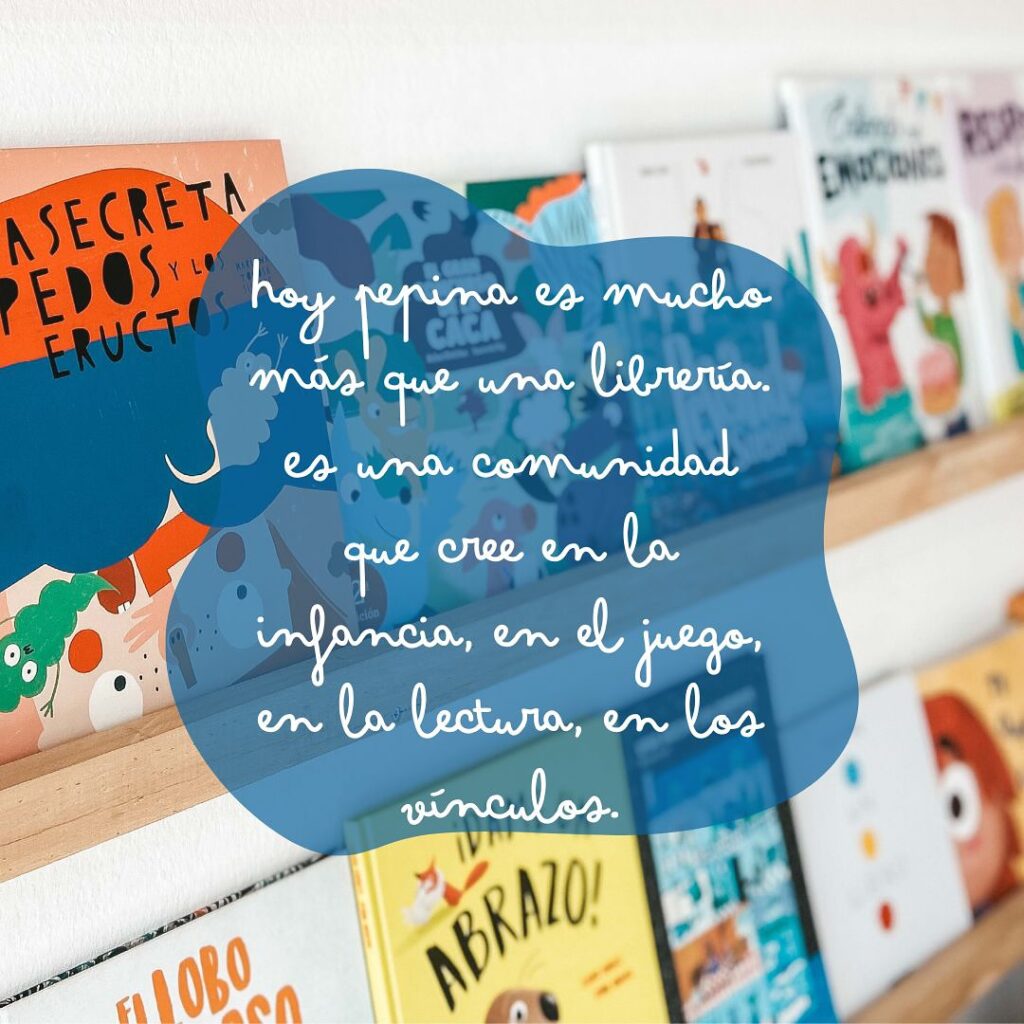 hoy pepina es mucho
más que una librería.
es una comunidad
que cree en la
infancia, en el juego,
en la lectura, en los
vínculos.
A SECRETA
PEDOS Y LOS
ERUCTOS
EL GRAN
CACA
EMOCIONES
ABRAZO!
EL LOBO